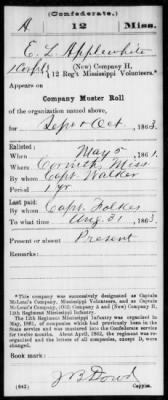 (Confederate.)
A. 12 Miss.
E. L. Applewhite
1 Corpl, (New) Company H,
12 Reg't Mississippi Volunteers.*
Appears on
Company Muster Roll
of the organization named above,
for Sept & Oct, 1863.
Enlisted:
When May 5, 1861.
Where Corinth, Miss
By whom Capt. Walker
Period 1 yr
Last paid:
By whom Capt. Folkes
To what time Aug 31, 1863.
Present or absent Present
Remarks:
*This company was successively designated as Captain
McLean's Company, Mississippi Volunteers, and as Captain
(New) Company H,
12th Regiment Mississippi Infantry.
The 12th Regiment Mississippi Infantry was organized in
May, 1861, of companies which had previously been in the
State service and were mustered into the Confederate service
on various dates. About April, 1862, the regiment was reor-
ganized and the letters of all companies, except D, were
changed.
Book mark:
J B Dowd
(642) Copyist.